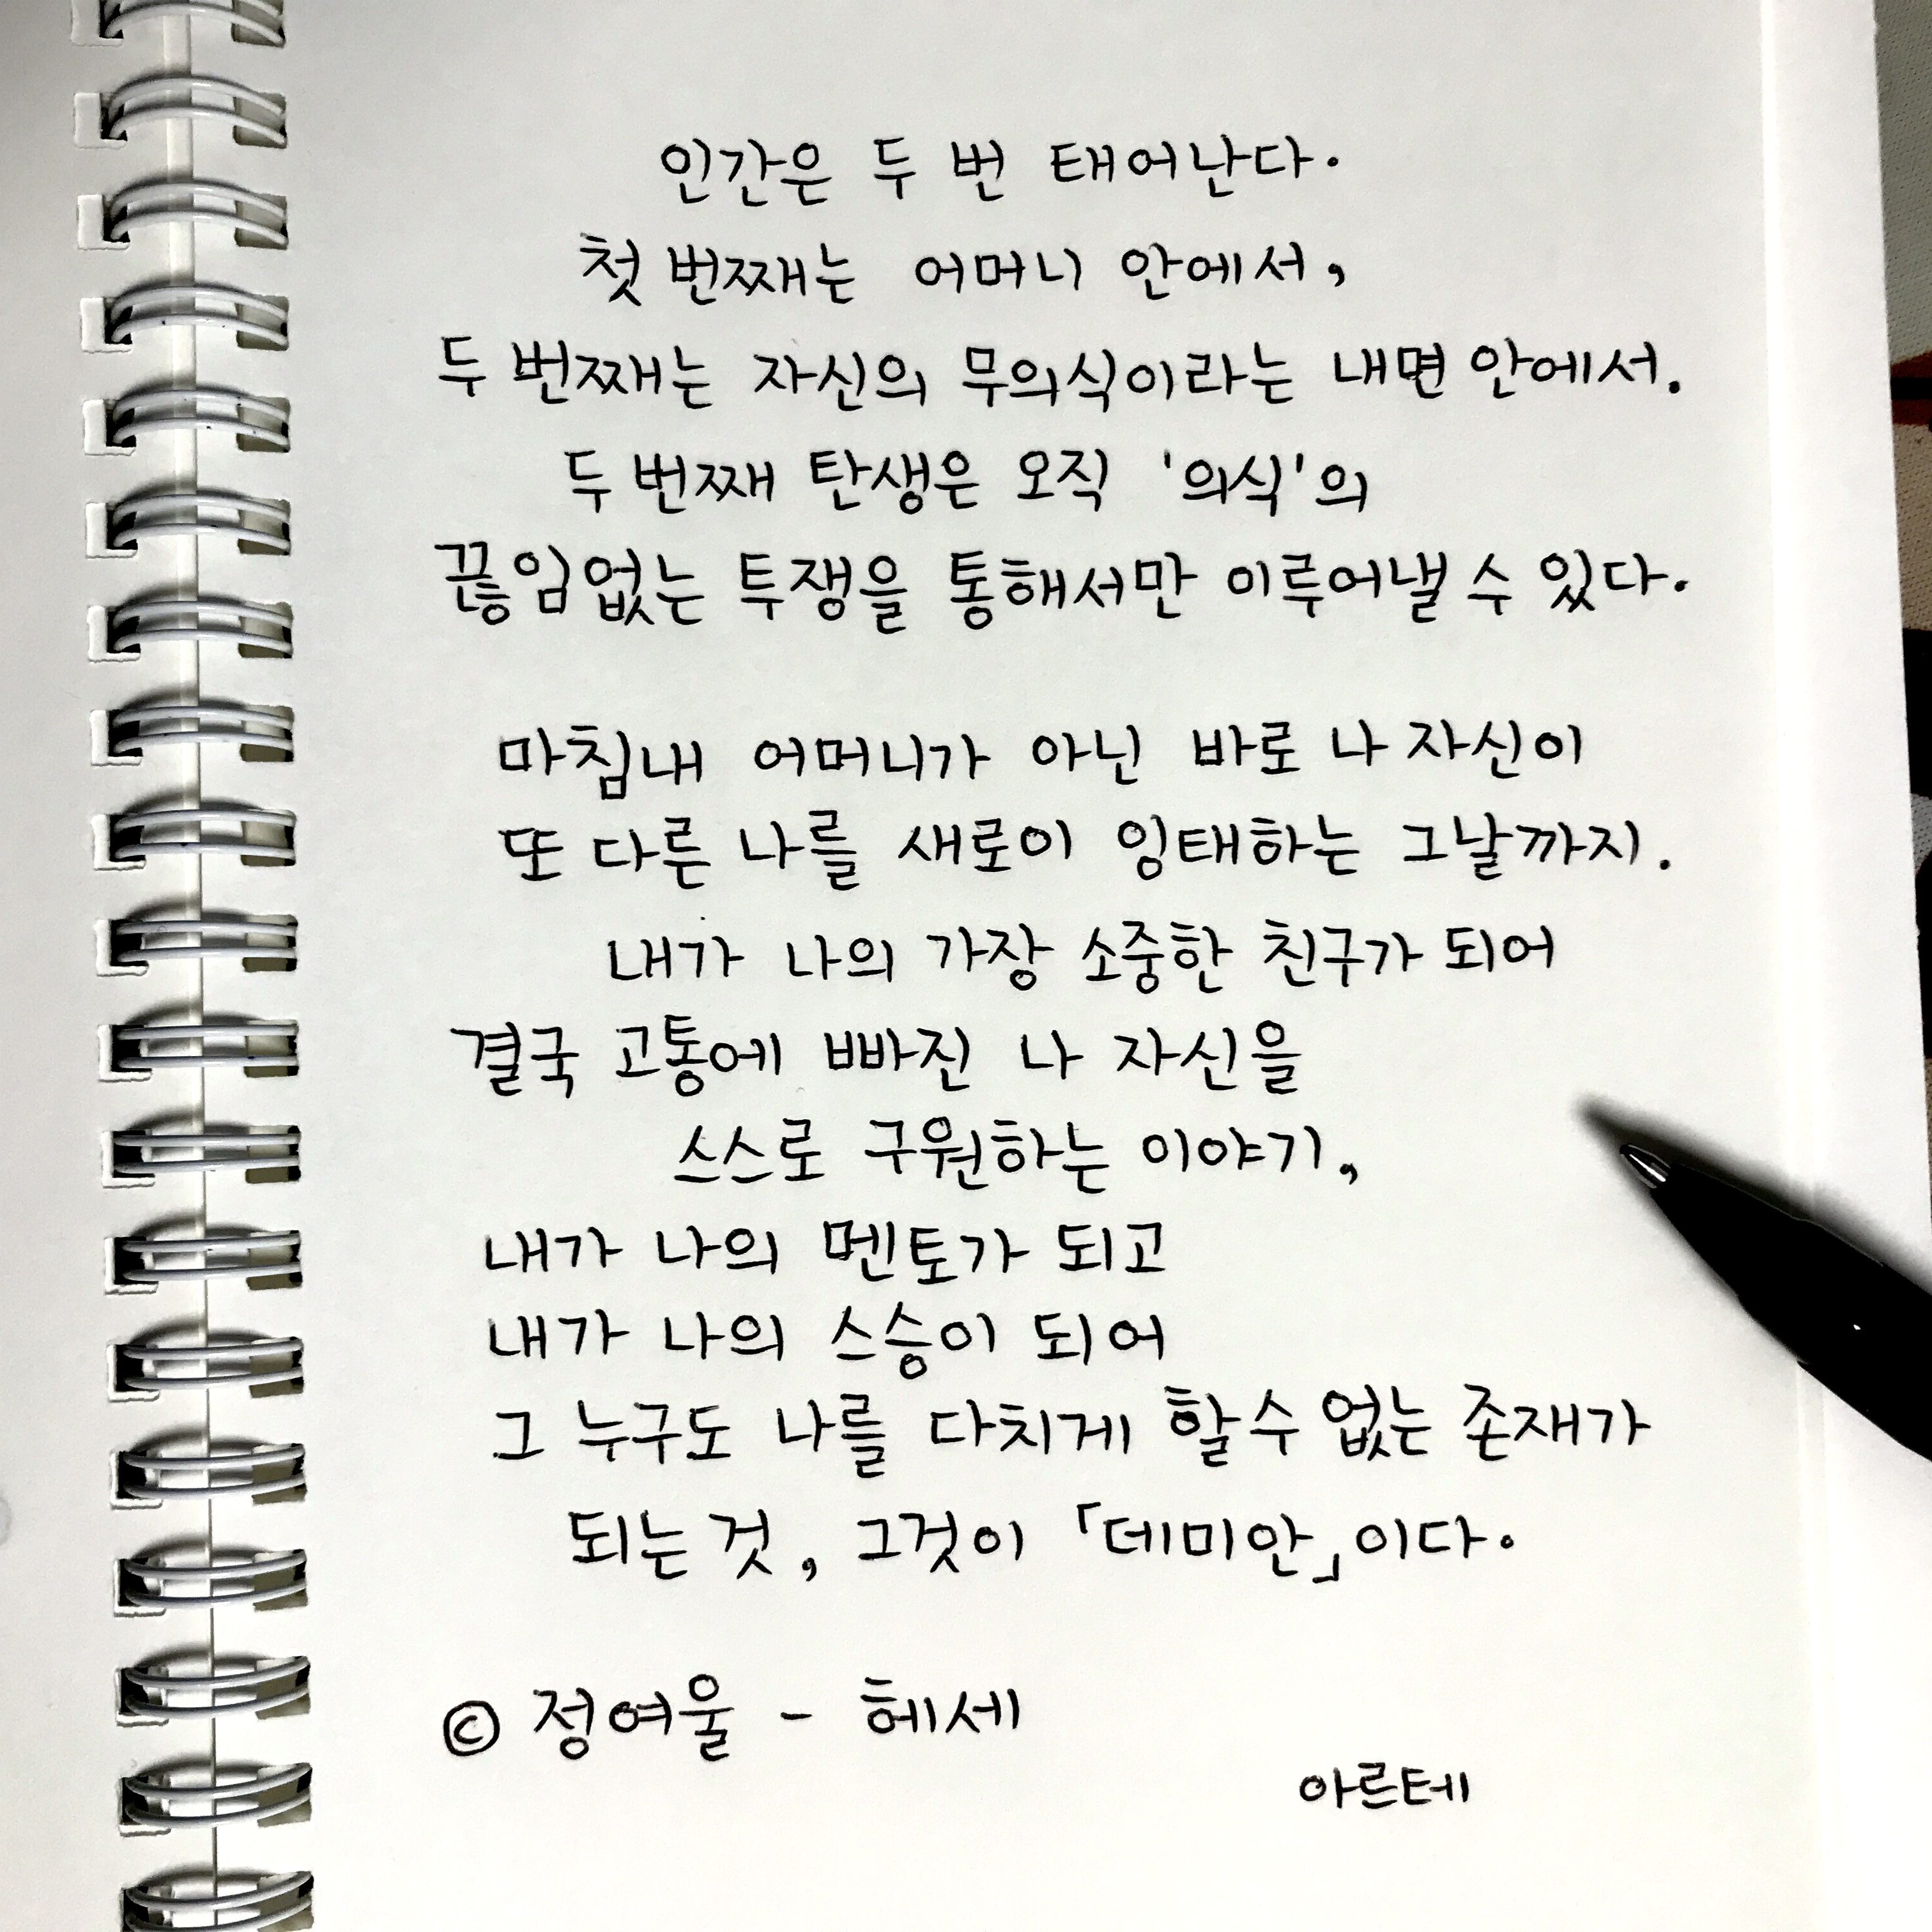 인간은 두 번 태어난다.
첫 번째는 어머니 안에서,
두 번째는 자신의 무의식이라는 내면 안에서.
두 번째 탄생은 오직 '의식'의
끊임없는 투쟁을 통해서만 이루어낼 수 있다.
마침내 어머니가 아닌 바로 나 자신이
또 다른 나를 새로이 잉태하는 그날까지.
내가 나의 가장 소중한 친구가 되어
결국 고통에 빠진 나 자신을
스스로 구원하는 이야기,
내가 나의 멘토가 되고
내가 나의 스승이 되어
그 누구도 나를 다치게 할 수 없는 존재가
되는 것, 그것이 「데미안」이다.
© 정여울 - 헤세
아르테